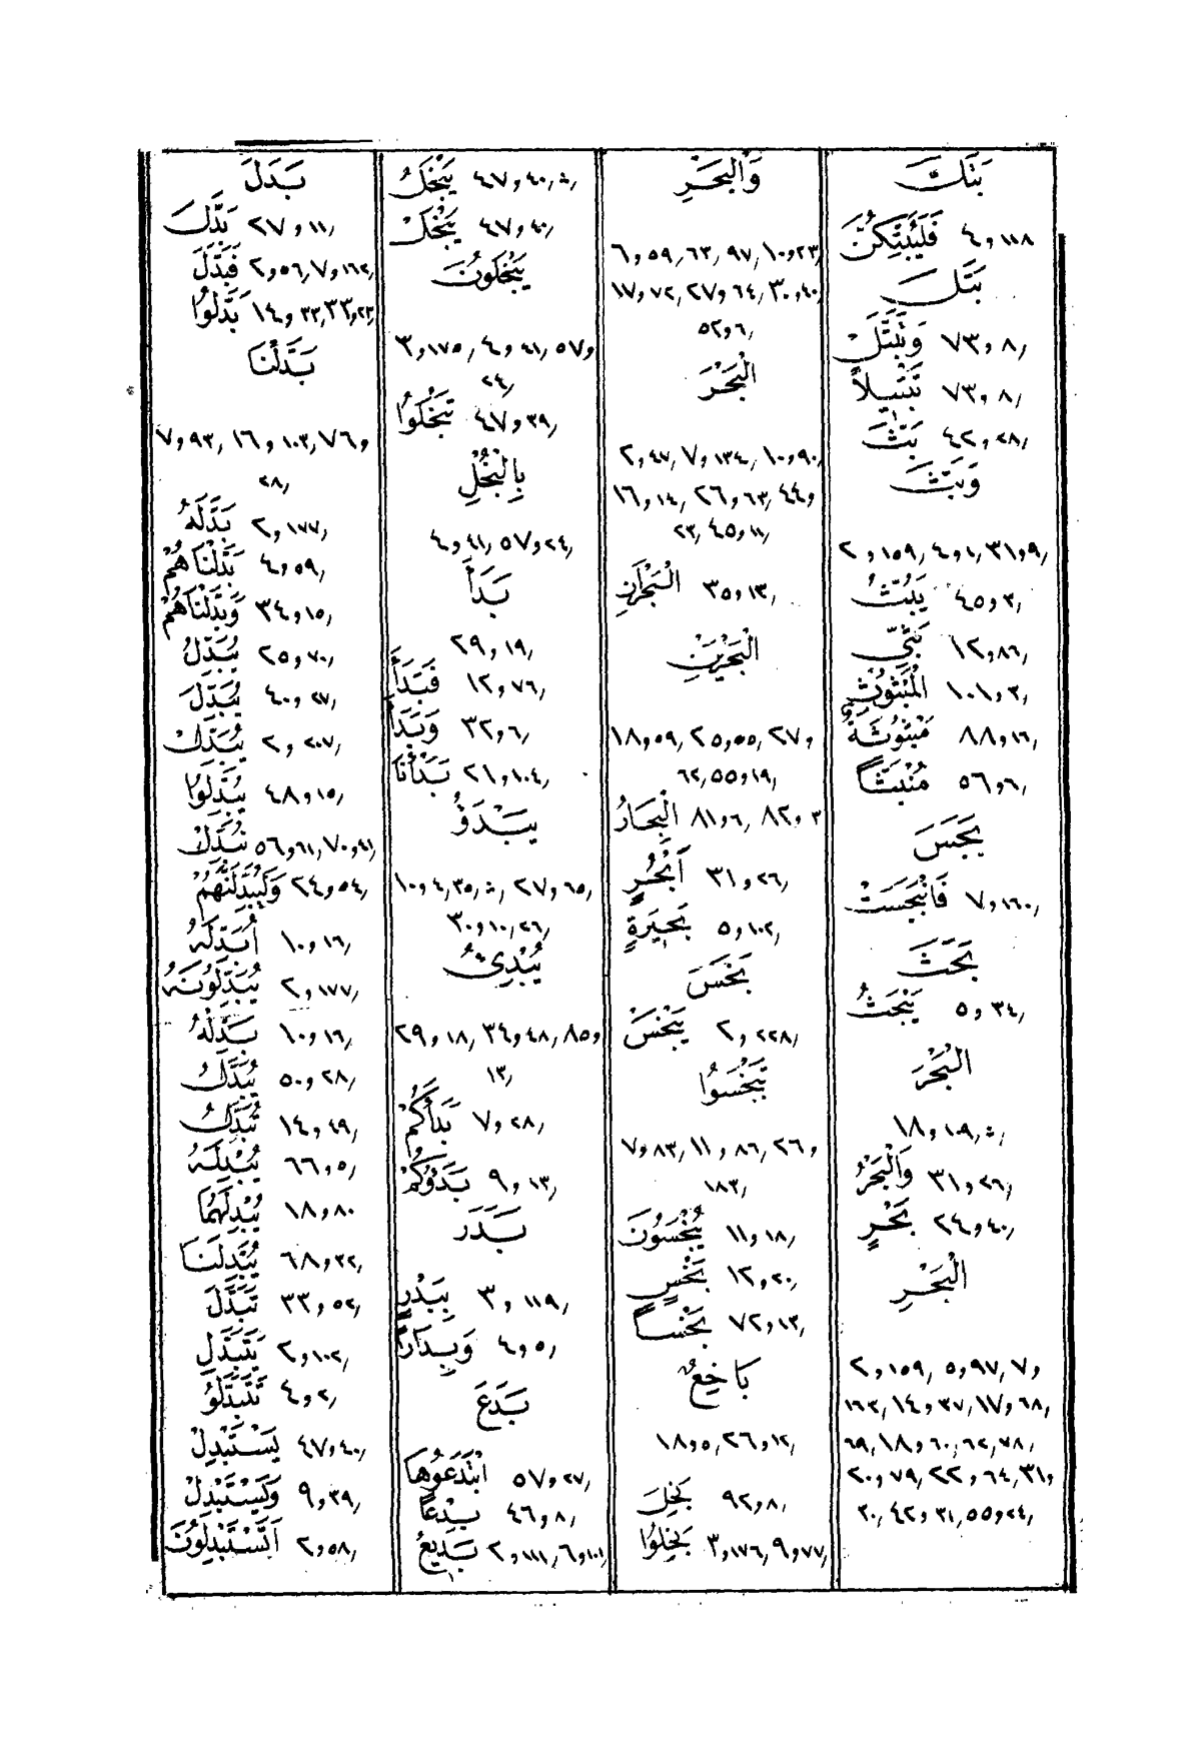 بَتَكَ
فَلَيُبَتِّكُنَّ ٤و١١٨
بَتَلَ
وَتَبَتَّلْ ٧٣و٨
تَبْتِيلاً ٧٣و٨
بَثَّ ٤٢و٢٨
وَبَثَّ
٢و١٥٩, ٤و١, ٣١و٩
يَبُثُّ ٤٥و٣
بَثِّي ١٢و٨٦
الْمَبْثُوثِ ١٠١و٣
مَبْثُوثَةٌ ٨٨و١٦
مُنْبَثّاً ٥٦و٦
بَجَسَ
فَانْبَجَسَتْ ٧و١٦٠
بَحَثَ
يَبْحَثُ ٥و٣٤
الْبَحْرَ
١٨و١٠٩
وَالْبَحْرُ ٣١و٢٦
بَحْرٍ ٢٤و٤٠
الْبَحْرِ
٢و١٥٩, ٥و٩٧, ٧و
١٦٢, ١٤و٣٧, ١٧و٦٨
٦٩, ١٨و٦٠, ٦٢, ٧٨
٢٠و٧٩, ٢٢و٦٤, ٣١و
٣٠, ٤٢و٣١, ٥٥و٢٤
وَالْبَحْرِ
٦و٥٩, ٦٣, ٩٧, ١٠و٢٣
١٧و٧٢, ٢٧و٦٤, ٣٠و٤٠
٥٢و٦
الْبَحْرَ
٢و٤٧, ٧و١٣٤, ١٠و٩٠
١٦و١٤, ٢٦و٦٣, ٤٤و
٢٣, ٤٥و١١
الْبَحْرَانِ ٣٥و١٣
الْبَحْرَيْنِ
١٨و٥٩, ٢٥و٥٥, ٢٧و
٦٢, ٥٥و١٩
الْبِحَارُ ٨١و٦, ٨٢و٣
أَبْحُرٍ ٣١و٢٦
بَحِيرَةٍ ٥و١٠٢
بَخَسَ
يَبْخَسْ ٢و٢٢٨
تَبْخَسُوا
٧و٨٣, ١١و٨٦, ٢٦و
١٨٣
يُبْخَسُونَ ١١و١٨
بَخْسٍ ١٢و٢٠
بَخْساً ٧٢و١٣
بَاخِعٌ
١٨و٥, ٢٦و١٢
بَخِلَ ٩٢و٨
بَخِلُوا ٣و١٧٦, ٩و٧٧
يَبْخَلُ ٤٧و٤٠
يَبْخَلْ ٤٧و٤٠
يَبْخَلُونَ
٣و١٧٥, ٤و٤١, ٥٧و
٢٤
تَبْخَلُوا ٤٧و٣٩
بِالْبُخْلِ
٤و٤١, ٥٧و٢٤
بَدَأَ
٢٩و١٩
فَبَدَأَ ١٢و٧٦
وَبَدَأَ ٣٢و٦
بَدَأْنَا ٢١و١٠٤
يَبْدَؤُ
١٠و٤, ٣٥, ٢٧و٦٥
٣٠و١٠, ٢٦
يُبْدِئُ
٢٩و١٨, ٣٤و٤٨, ٨٥و
١٣
بَدَأَكُمْ ٧و٢٨
بَدَؤُكُمْ ٩و١٣
بَدَرَ
بِبَدْرٍ ٣و١١٩
وَبِدَاراً ٤و٥
بَدَعَ
ابْتَدَعُوهَا ٥٧و٢٧
بِدْعاً ٤٦و٨
بَدِيعُ ٢و١١١, ٦و١٠١
بَدَلَ
بَدَّلَ ٢٧و١١
فَبَدَّلَ ٢و٥٦, ٧و١٦٢
بَدَّلُوا ١٤و٣٣, ٣٣و٢٣
بَدَّلْنَا
٧و٩٣, ١٦و١٠٣, ٧٦و
٢٨
بَدَّلَهُ ٢و١٧٧
بَدَّلْنَاهُمْ ٤و٥٩
وَبَدَّلْنَاهُمْ ٣٤و١٥
يُبَدِّلُ ٢٥و٧٠
يُبَدِّلَ ٤٠و٢٧
يُبَدِّلْ ٢و٢٠٧
يُبَدِّلُوا ٤٨و١٥
نُبَدِّلَ ٥٦و٦١, ٧٠و٤١
وَلَيُبَدِّلَنَّهُمْ ٢٤و٥٤
أُبَدِّلَهُ ١٠و١٦
يُبَدِّلُونَهُ ٢و١٧٧
بَدِّلْهُ ١٠و١٦
يُبَدَّلُ ٥٠و٢٨
تُبَدَّلُ ١٤و٤٩
يُبْدِلَهُ ٦٦و٥
يُبْدِلَهُمَا ١٨و٨٠
يُبْدِلَنَا ٦٨و٣٢
تَبَدَّلَ ٣٣و٥٢
يَتَبَدَّلِ ٢و١٠٢
تَتَبَدَّلُوا ٤و٢
يَسْتَبْدِلْ ٤٧و٤٠
وَيَسْتَبْدِلْ ٩و٣٩
أَتَسْتَبْدِلُونَ ٢و٥٨